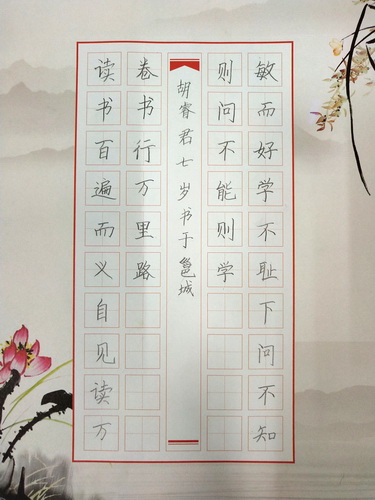 敏而好学不耻下问不知
则问不能则学
读书百遍而义自见读万
卷书行万里路
胡睿君七岁书于邕城